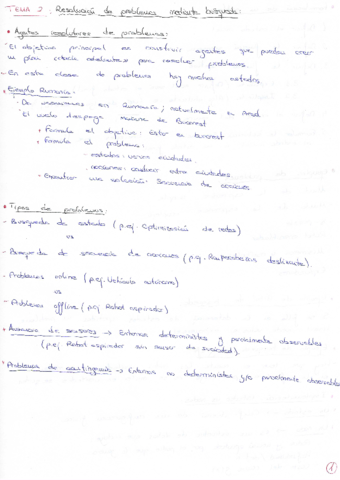 TEMA 2: Resolución de problemas mediante búsqueda:
• Agentes resolutores de problemas:
- El objetivo principal es construir agentes que puedan crear
un plan para resolver problemas.
- En esta clase de problemas hay muchos estados.
• Ejemplo Rumanía:
- De vacaciones en Rumanía; actualmente en Arad.
- El vuelo despega mañana de Bucarest
• Formula el objetivo: Estar en Bucarest
• Formula el problema:
- estados: varias ciudades.
- acciones: conducir entre ciudades
- Encontrar una solución: Secuencia de acciones
• Tipos de problemas:
- Búsqueda de estado (p.ej. Optimización de redes)
vs
- Búsqueda de secuencia de acciones (p.ej. Rompecabezas deslizante).
- Problemas online (p.ej. Vehículo autónomo)
vs
- Problemas offline (p.ej Robot aspirador)
• Ausencia de sensores → Entornos deterministas y parcialmente observables
(p.ej Robot aspirador sin sensor de suciedad).
• Problemas de contingencia → Entornos no deterministas y/o parcialmente observables
1